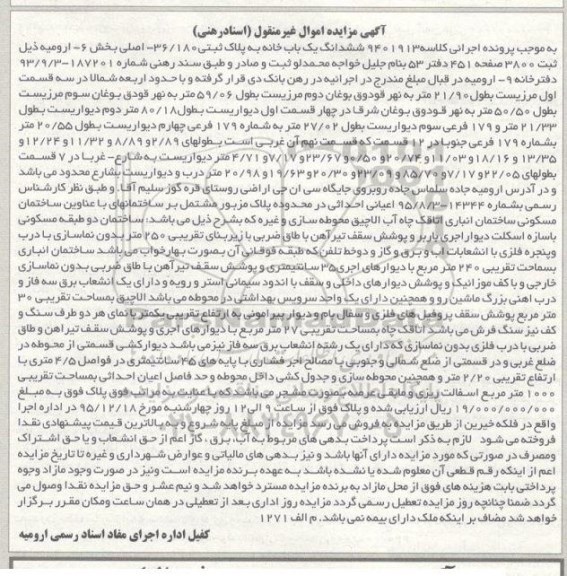 آگهی مزایده اموال غیرمنقول (اسنادرهنی)
به موجب پرونده اجرائی کلاسه ۹۴۰۱۹۱۳ ششدانگ یک باب خانه به پلاک ثبتی ۳۶/۱۸۰- اصلی بخش ۶- ارومیه ذیل
ثبت ۳۸۰۰ صفحه ۴۵۱ دفتر ۵۳ بنام جلیل خواجه محمدلو ثبت و صادر و طبق سند رهنی شماره ۱۸۷۲۰۱-۹۳/۹/۳
دفترخانه ۹- ارومیه در قبال مبلغ مندرج در اجرائیه در رهن بانک دی قرار گرفته و با حدود اربعه شمالا در سه قسمت
اول مرزیست بطول ۲۱/۹۰ متر به نهر قودوق بوغان دوم مرزیست بطول ۵۹/۰۶ متر به نهر قودق بوغان سوم مرزیست
بطول ۵۰/۵۰ متر به نهر قودوق بوغان شرقا در چهار قسمت اول دیواریست بطول ۸۰/۱۸ متر دوم دیواریست بطول
۲۱/۳۳ متر و ۱۷۹ فرعی سوم دیواریست بطول ۲۷/۰۲ متر به شماره ۱۷۹ فرعی چهارم دیواریست بطول ۲۰/۵۵ متر
بشماره ۱۷۹ فرعی جنوبا در ۱۲ قسمت که قسمت نهم آن غربی است بطولهای ۲/۸۹ و ۸/۸۹ و ۱۱/۳۲ و ۱۲/۲۴ و
۱۳/۳۵ و ۱۸/۱۶ و ۱۱/۰۳ و ۲۰/۷۴ و ۰/۵۰ و ۲۳/۶۷ و ۷/۱۷ و ۴/۷۱ متر دیواریست به شارع- غربا در ۷ قسمت
بطولهای ۲۲/۰۵ و ۷/۱۷ و ۵/۷۰ و ۲۳/۳۰ و ۱۹/۶۳ و ۲۰/۹۸ متر درب و دیواریست بشارع محدود می باشد
و در آدرس ارومیه جاده سلماس جاده روبروی جایگاه سی ان جی اراضی روستای قره گوز سلیم آقا و طبق نظر کارشناس
رسمی بشماره ۱۴۳۴۴-۹۵/۸/۳ اعیانی احداثی در محدوده پلاک مزبور مشتمل بر ساختمانهای با عناوین ساختمان
مسکونی ساختمان انباری اتاقک چاه آب الاچیق محوطه سازی و غیره که بشرح ذیل می باشد: ساختمان دو طبقه مسکونی
باسازه اسکلت دیوار اجری باربر و پوشش سقف تیر آهن با طاق ضربی با زیربنای تقریبی ۲۵۰ متر بدون نماسازی با درب
وپنجره فلزی با انشعابات آب و برق و گاز و دوخط تلفن که طبقه فوقانی آن بصورت بهارخواب می باشد ساختمان انباری
بمساحت تقریبی ۲۴۰ متر مربع با دیوارهای اجری ۳۵ سانتیمتری و پوشش سقف تیر آهن با طاق ضربی بدون نماسازی
خارجی و با کف موزائیک و پوشش دیوارهای داخلی و سقف با اندود سیمانی استر و رویه و دارای یک انشعاب برق سه فاز و
درب اهنی بزرگ ماشین رو و همچنین دارای یک واحد سرویس بهداشتی در محوطه می باشد الاچیق بمساحت تقریبی ۳۰
متر مربع پوشش سقف پروفیل های فلزی و سفال بام و دیوار پیرامونی به ارتفاع تقریبی یکمتر با نمای هر دو طرف سنگ و
کف نیز سنگ فرش می باشد اتاقک چاه بمساحت تقریبی ۲۷ متر مربع با دیوارهای اجری و پوشش سقف تیرآهن و طاق
ضربی با درب فلزی بدون نماسازی که دارای یک رشته انشعاب برق سه فاز نیز می باشد دیوارکشی قسمتی از محوطه در
ضلع غربی و در قسمتی از ضلع شمالی و جنوبی با مصالح اجر فشاری با پایه های ۴۵ سانتیمتری در فواصل ۴/۵ متری با
ارتفاع تقریبی ۲/۲۰ متر و همچنین محوطه سازی و جدول کشی داخل محوطه و حد فاصل اعیان احداثی بمساحت تقریبی
۱۰۰۰ متر مربع اسفالت ریزی و مابقی عرصه بصورت مشجر می باشد که با عنایت به مراتب فوق پلاک فوق به مبلغ
۱۹/۰۰۰/۰۰۰/۰۰۰ ریال ارزیابی شده و پلاک فوق از ساعت ۹ الی ۱۲ روز چهارشنبه مورخ ۹۵/۱۲/۱۸ در اداره اجرا
واقع در فلکه خیرین از طریق مزایده به فروش می رسد مزایده از مبلغ فوق شروع و به بالاترین قیمت پیشنهادی نقدا
فروخته می شود لازم به ذکر است پرداخت بدهی های مربوط به آب، برق، گاز اعم از حق انشعاب و یا حق اشتراک
ومصرف در صورتی که مورد مزایده دارای آنها باشد و نیز بدهی های مالیاتی و عوارض شهرداری و غیره تا تاریخ مزایده
اعم از اینکه رقم قطعی آن معلوم شده یا نشده باشد به عهده برنده مزایده است ونیز در صورت وجود مازاد وجوه
پرداختی بابت هزینه های فوق از محل مازاد به برنده مزایده مسترد خواهد شد و نیم عشر و حق مزایده نقدا وصول می
گردد ضمنا چنانچه روز مزایده تعطیل رسمی گردد مزایده روز اداری بعد از تعطیلی در همان ساعت ومکان مقرر برگزار
خواهد شد مضاف بر اینکه ملک دارای بیمه نمی باشد. م الف ۱۲۷۱
کفیل اداره اجرای مفاد اسناد رسمی ارومیه